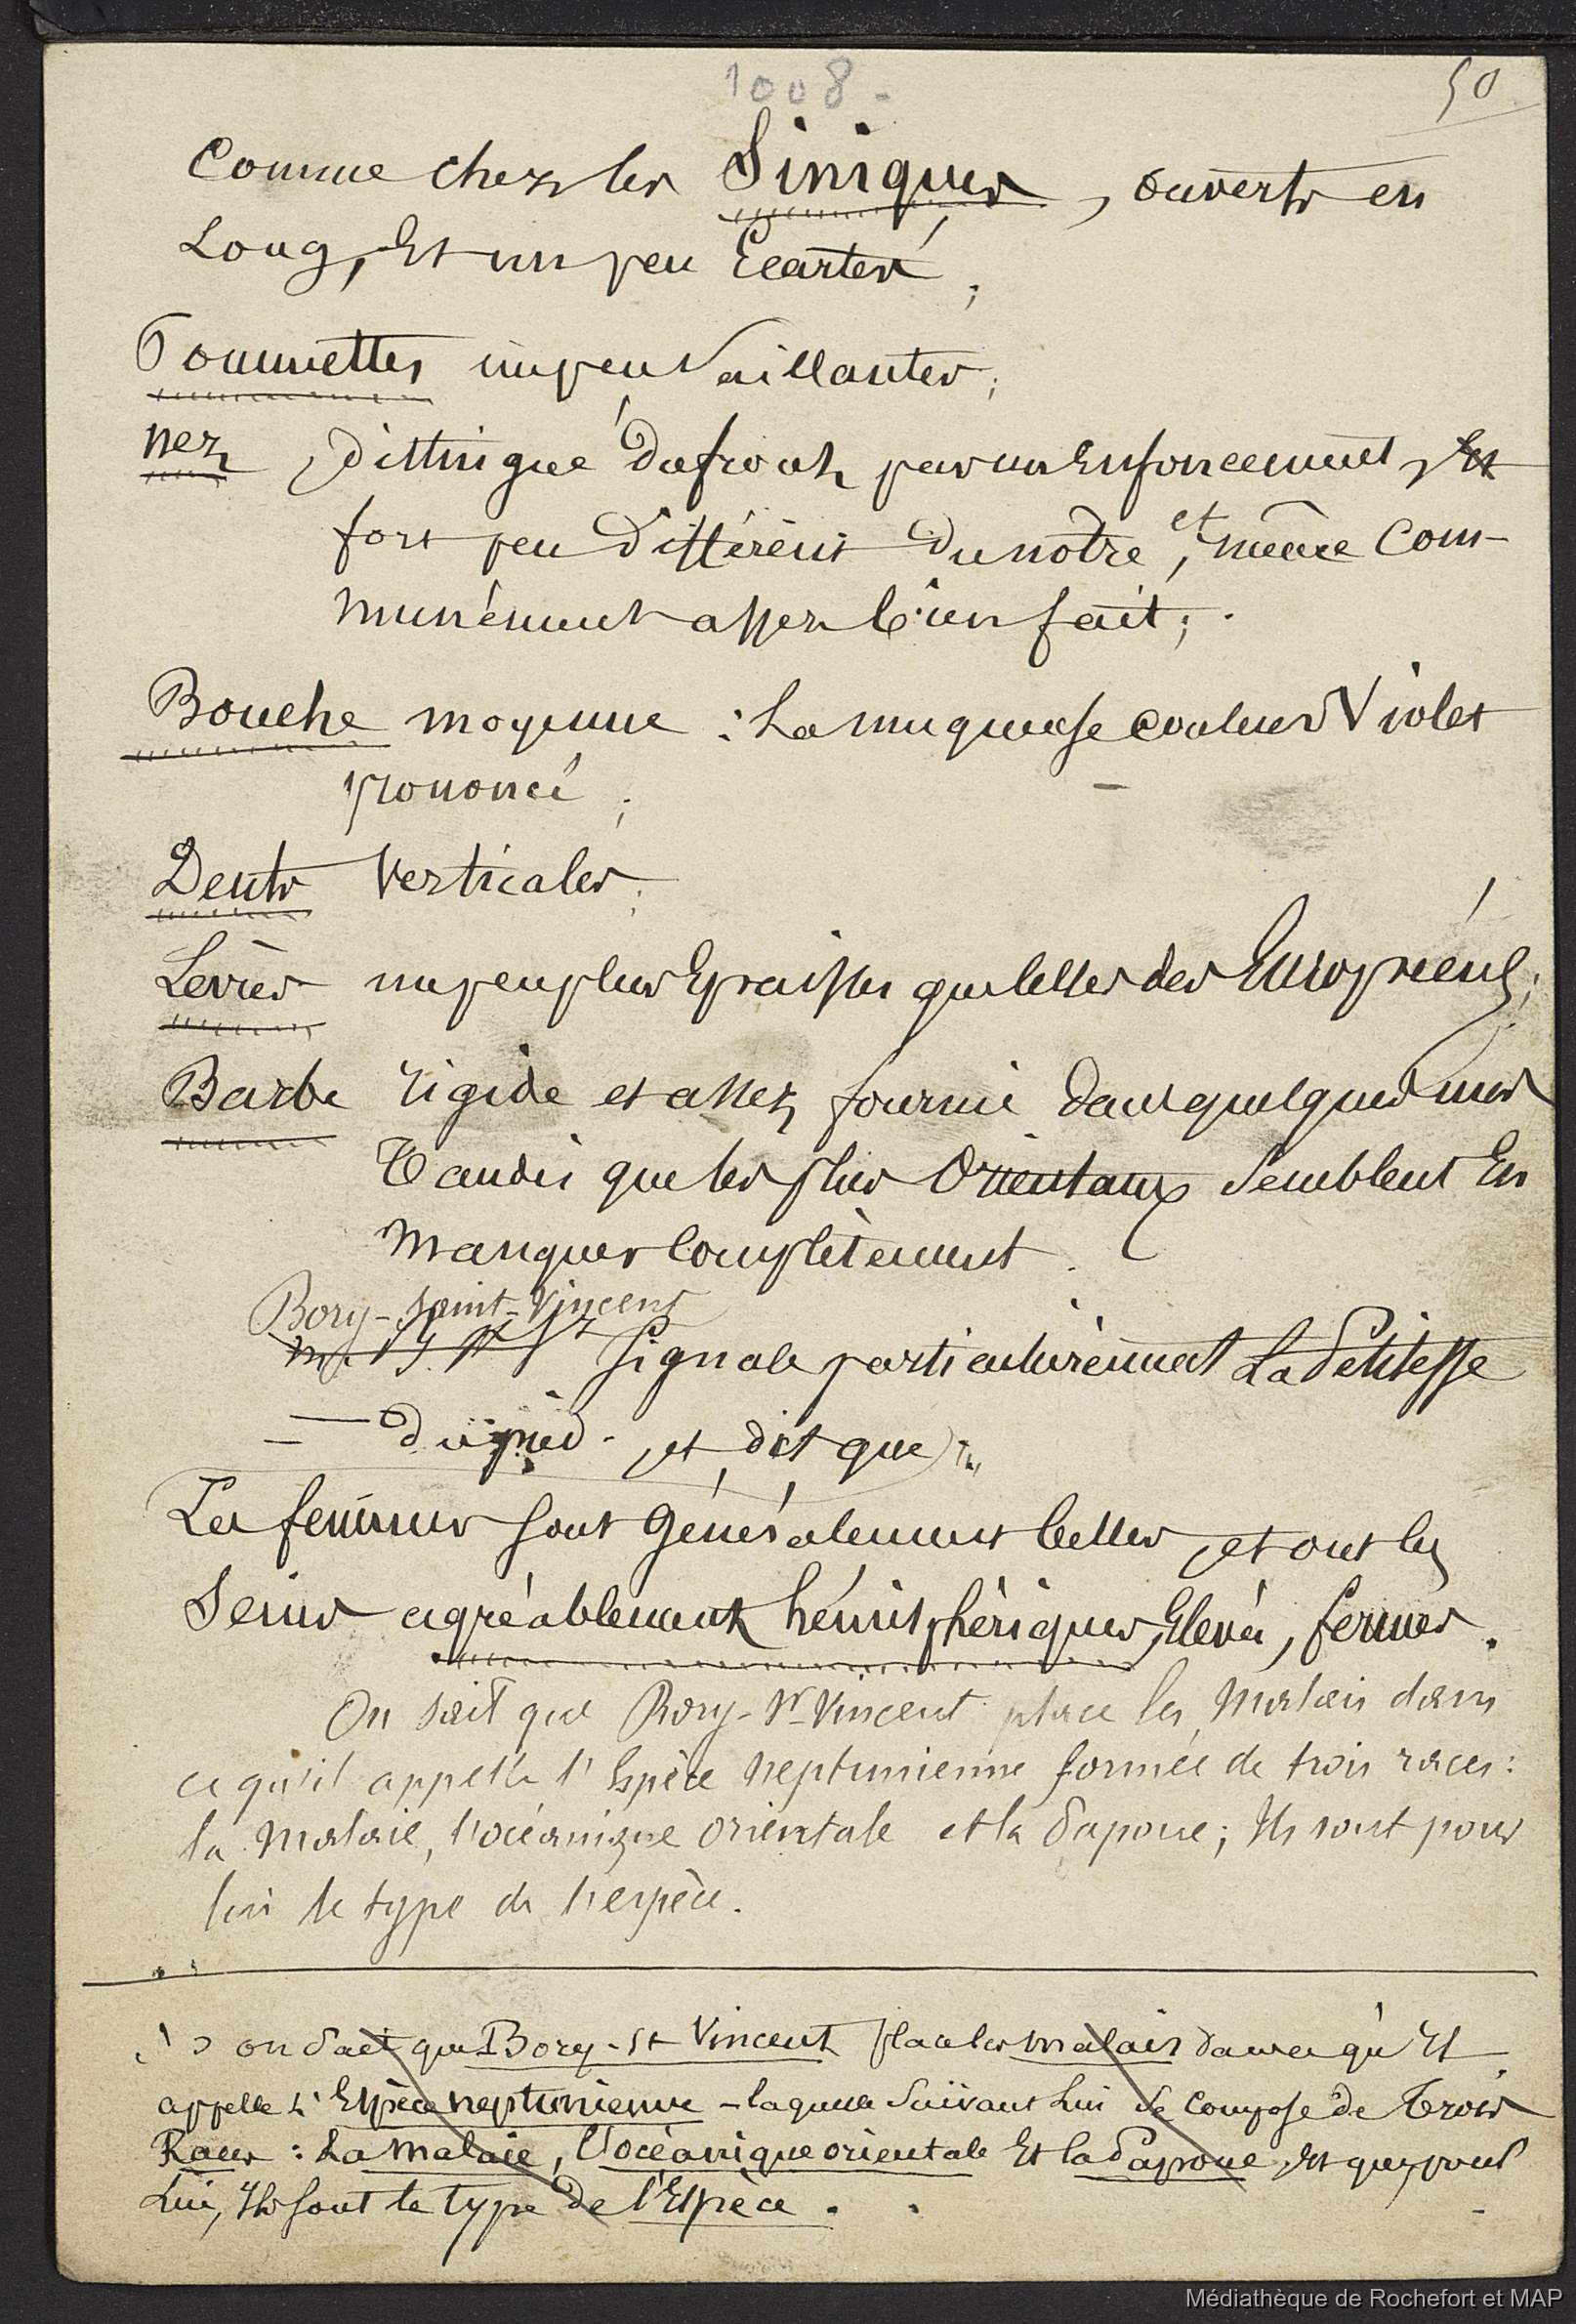 1008 -
50
Comme chez les Siniques, ouverts en
Long, Et un peu Ecartés;
Pommettes un peu Saillantes;
nez, distingué du front par un Enfoncement, Et
fort peu différent du notre, et même Com-
munément assez bien fait;
Bouche moyenne : La muqueuse couleur Violet
prononcé;
Dents Verticales;
Levres un peu plus Epaisses que celles des Européens;
Barbe rigide et assez fournie dans quelques uns
Tandis que les plus Orientaux Semblent En
manquer Complètement.
Bory-Saint-Vincent
Signale particulièrement La Petitesse
du pied - et dit que
Les femmes sont Généralement belles, et ont les
Seins agréablement hémisphériques, Elevés, fermes.
On sait que Bory-St-Vincent place les Malais dans
ce qu'il appelle l'Espèce Neptunienne formée de trois races:
la Malaie, l'océanique orientale et la Papoue; Ils sont pour
lui le type de l'espèce.
on Sait que Bory-St Vincent place les malais dans ce qu'Il
appelle L'Espèce neptunienne - laquelle Suivant Lui se Compose de Trois
Races : La malaie, l'océanique orientale Et la Papoue, Et que, pour
Lui, Ils sont le type de l'Espèce.
Médiathèque de Rochefort et MAP